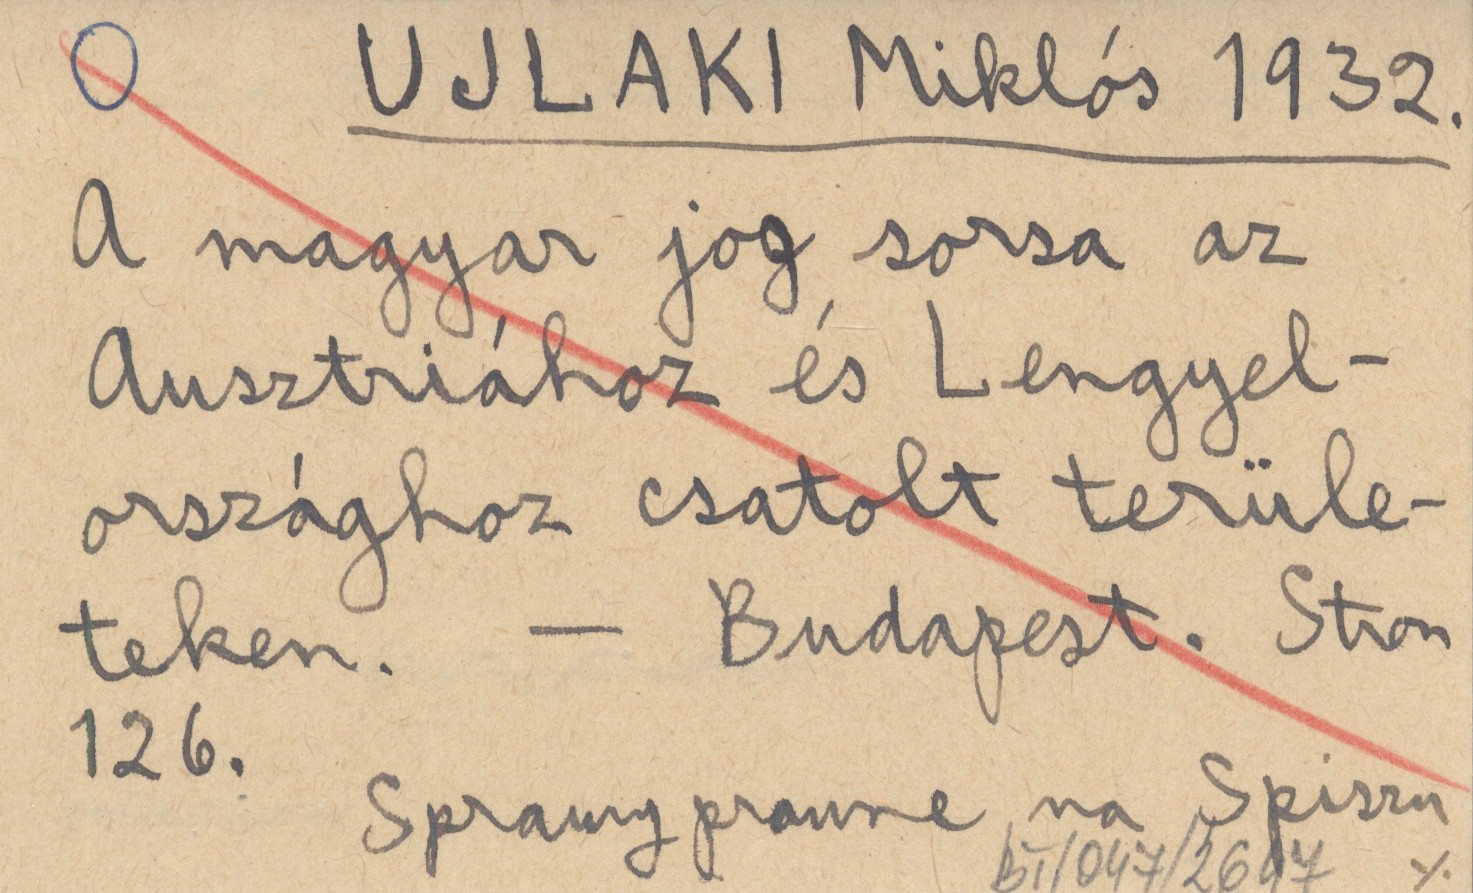 O UJLAKI Miklós 1932.
A magyar jog sorsa az
Ausztriához és Lengyel-
országhoz csatolt terüle-
teken. — Budapest. Stron
126.
Sprawy prawne na Spiszu
BT/047/2647